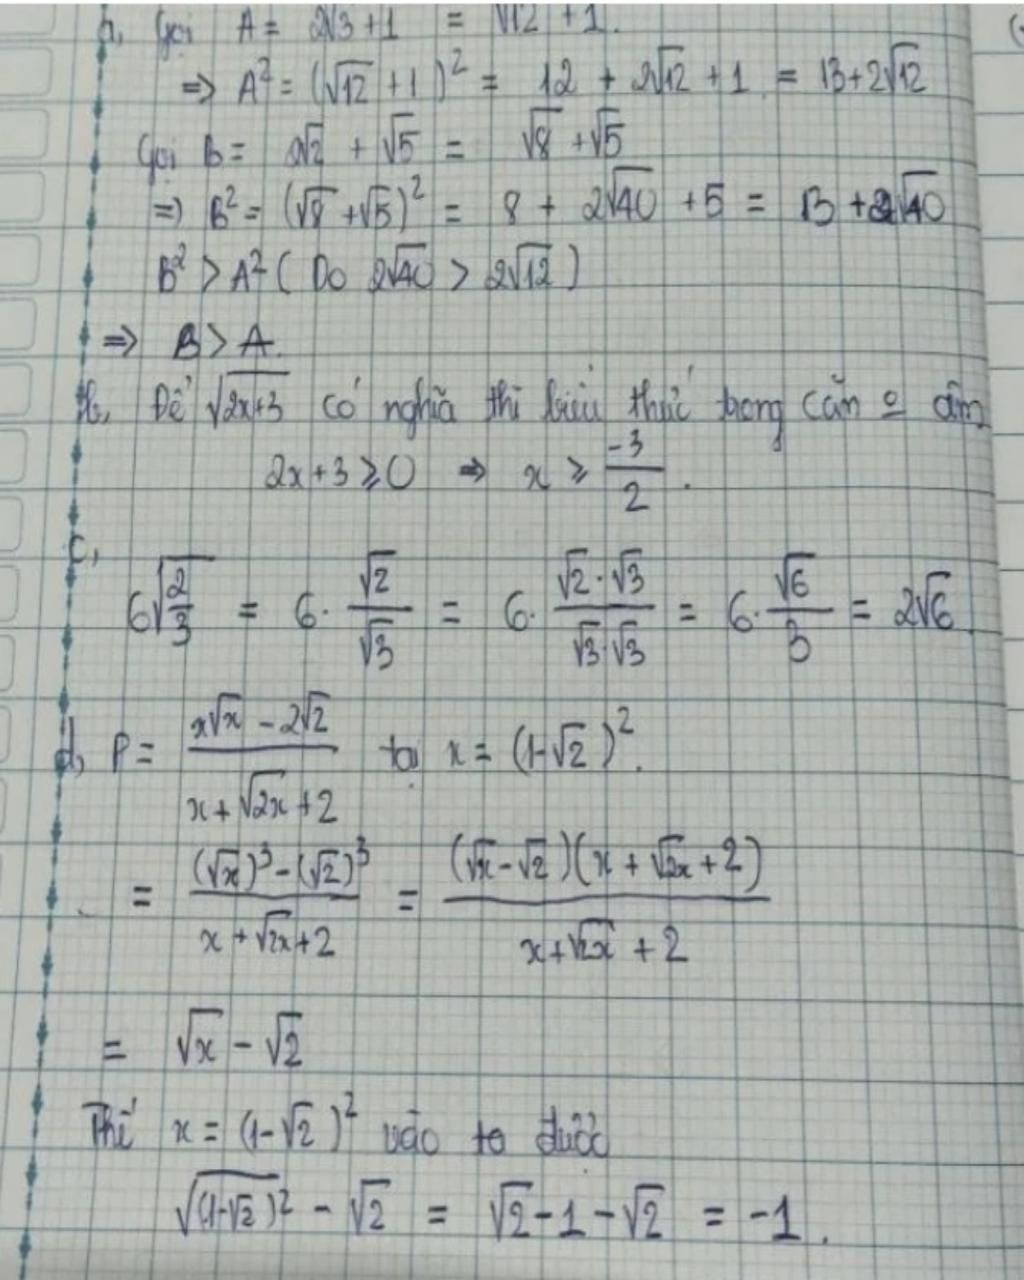 a, Gọi A = 2√3 + 1 = √12 + 1.
=> A² = (√12 + 1)² = 12 + 2√12 + 1 = 13 + 2√12
Gọi B = 2√2 + √5 = √8 + √5
=> B² = (√8 + √5)² = 8 + 2√40 + 5 = 13 + 2√40
B² > A² ( Do 2√40 > 2√12 )
=> B > A.
b, Để √(2x+3) có nghĩa thì biểu thức trong căn o âm
2x + 3 ⩾ 0 => x ⩾ -3/2 .
c,
6√(2/3) = 6 · √2/√3 = 6 · (√2 · √3)/(√3 · √3) = 6 · √6/3 = 2√6
d, P = (x√x - 2√2)/(x + √2x + 2) tại x = (1-√2)².
= ((√x)³ - (√2)³)/(x + √2x + 2) = ((√x - √2)(x + √2x + 2))/(x + √2x + 2)
= √x - √2
Thế x = (1-√2)² vào ta được
√((1-√2)²) - √2 = √2 - 1 - √2 = -1.